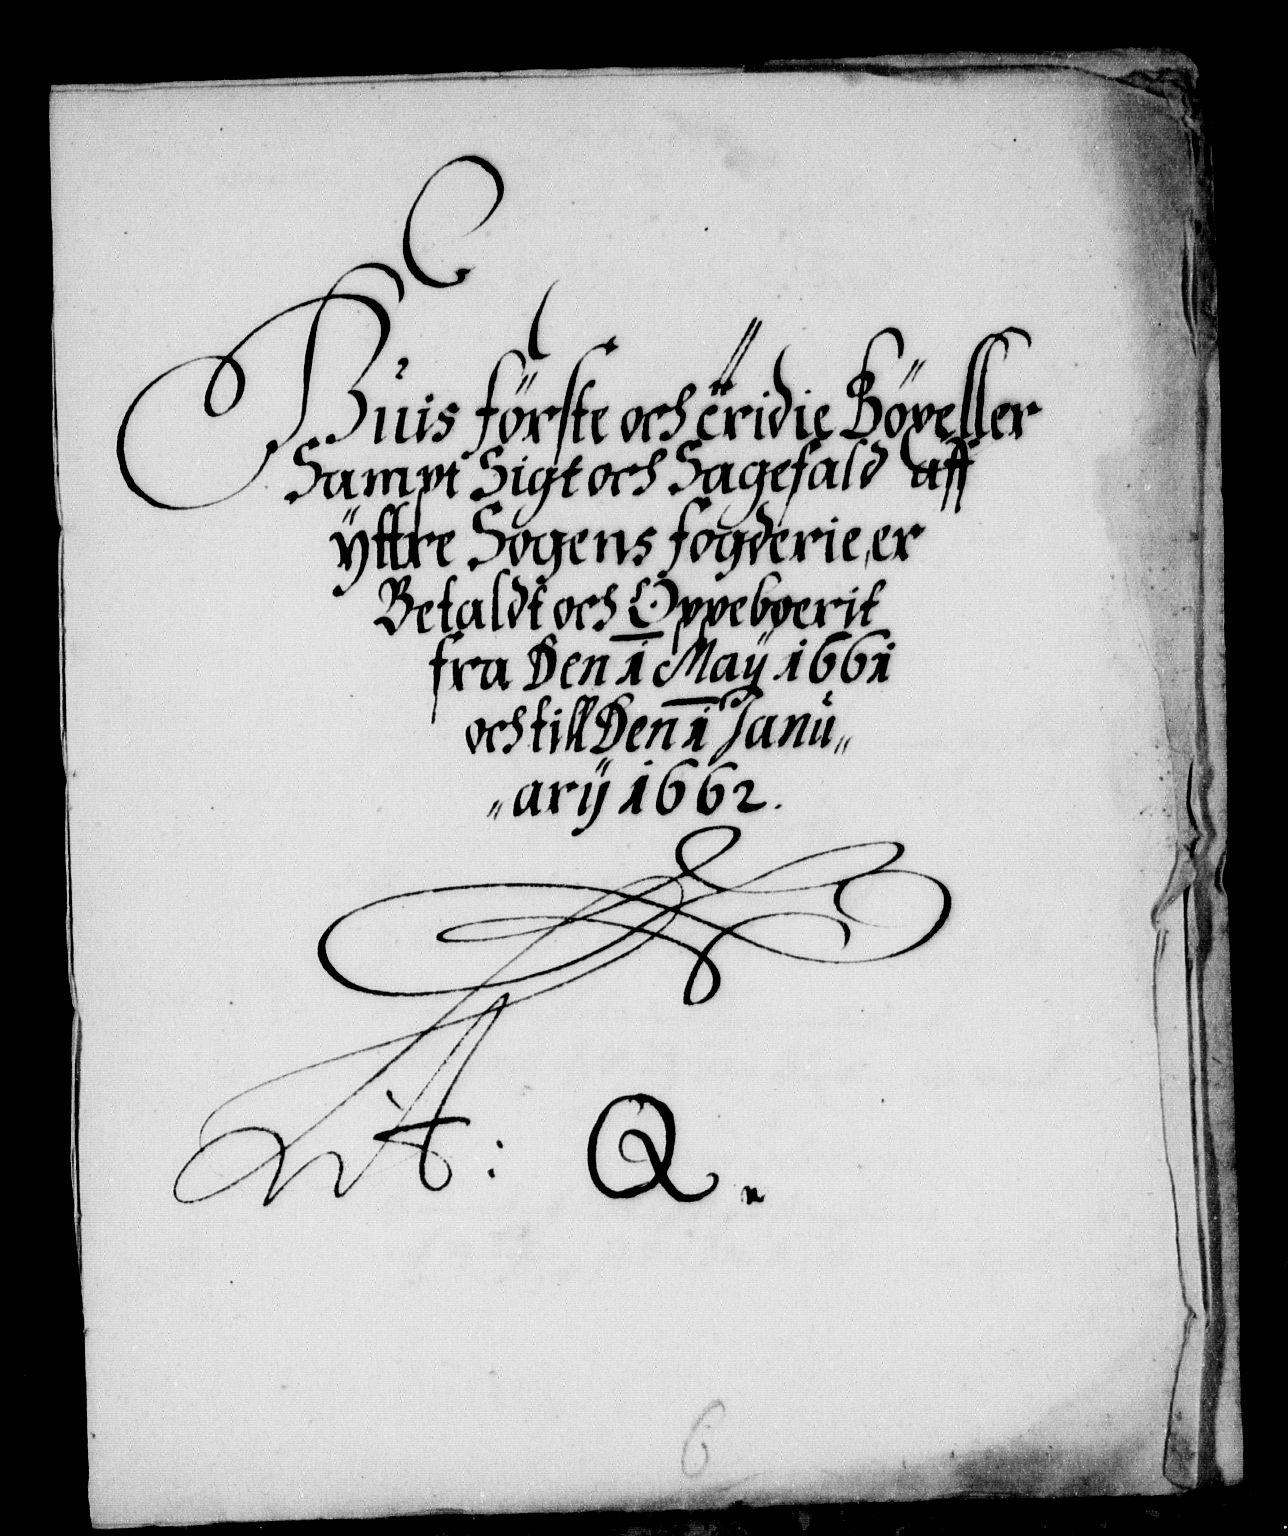 Huis förste och tridie Böxeller
Sampt Sigt och Sagefald aff
ÿttre Sogens fogderie, er
Betaldt och Oppeboerit
fra Den 1 Maÿ 1661
och till Den 1 Janu„
„arÿ 1662.
Lit: Q.
6